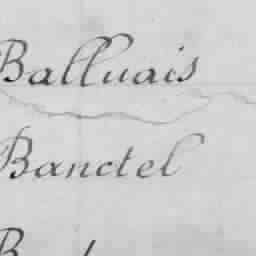 Balluais
Banctel